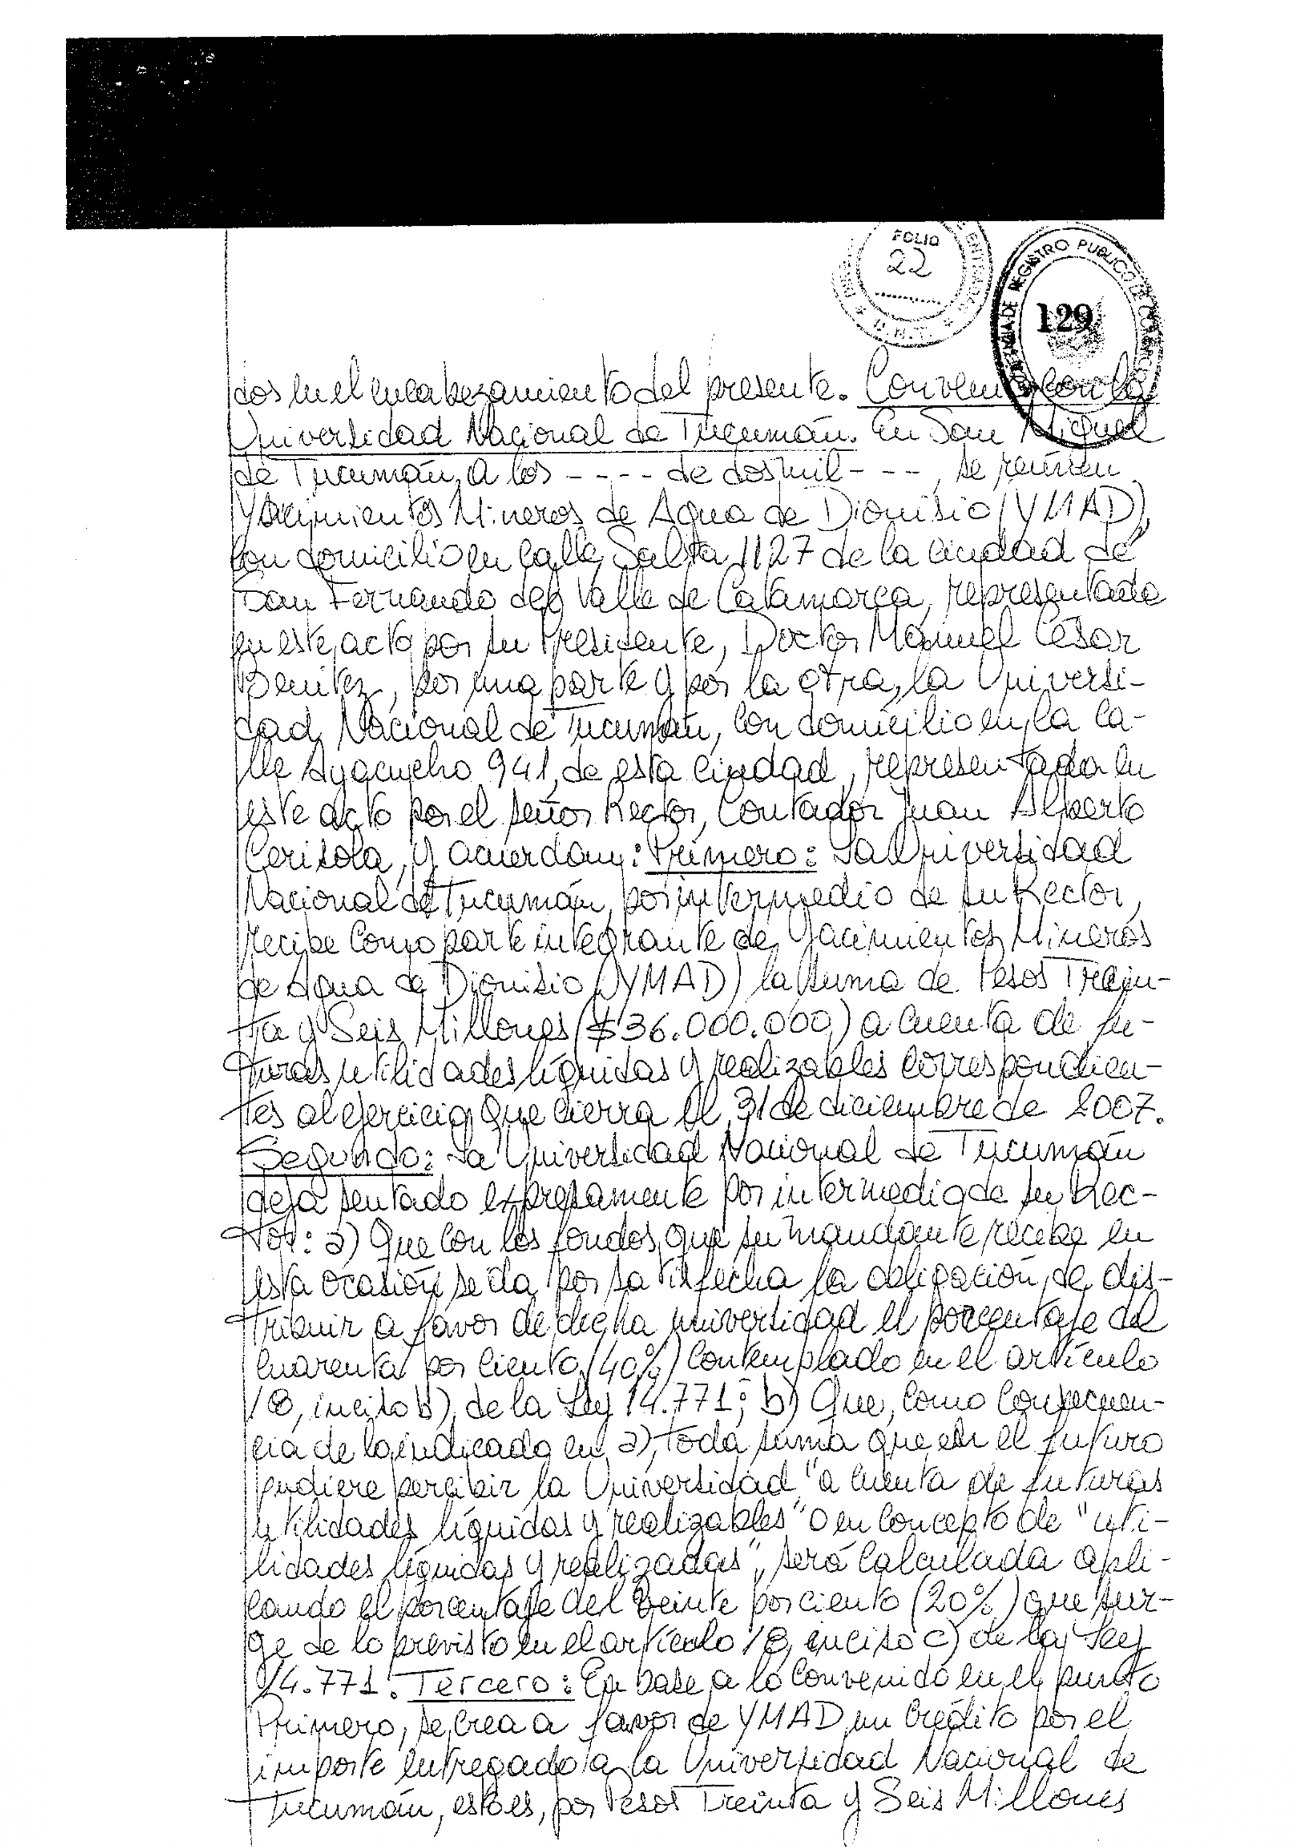 FOLIO
22
U.N.T.
REGISTRO PUBLICO DE
129
dos en el encabezamiento del presente. Convenio con la
Universidad Nacional de Tucumán. En San Miguel
de Tucumán, a los ---- de dos mil ---, se reúnen
Yacimientos Mineros de Agua de Dionisio (YMAD),
con domicilio en calle Salta 1127 de la ciudad de
San Fernando del Valle de Catamarca, representada
en este acto por su Presidente, Doctor Manuel César
Benitez, por una parte y por la otra, la Universi-
dad Nacional de Tucumán, con domicilio en la ca-
lle Ayacucho 941, de esta ciudad, representada en
este acto por el señor Rector, Contador Juan Alberto
Cerisola, y acuerdan: Primero: La Universidad
Nacional de Tucumán, por intermedio de su Rector,
recibe como parte integrante de Yacimientos Mineros
de Agua de Dionisio (YMAD) la suma de Pesos Trein-
ta y Seis Millones ($36.000.000) a cuenta de fu-
turas utilidades líquidas y realizables correspondien-
tes al ejercicio que cierra el 31 de diciembre de 2007.
Segundo: La Universidad Nacional de Tucumán
deja sentado expresamente por intermedio de su Rec-
tor: a) Que con los fondos que su mandante recibe en
esta ocasión se da por satisfecha la obligación de dis-
tribuir a favor de dicha universidad el porcentaje del
cuarenta por ciento (40%) contemplado en el artículo
18, inciso b), de la Ley 14.771; b) Que, como consecuen-
cia de lo indicado en a), toda suma que en el futuro
pudiere percibir la Universidad "a cuenta de futuras
utilidades líquidas y realizables" o en concepto de "uti-
lidades líquidas y realizadas", será calculada apli-
cando el porcentaje del veinte por ciento (20%) que sur-
ge de lo previsto en el artículo 18, inciso c) de la Ley
14.771. Tercero: En base a lo convenido en el punto
Primero, se crea a favor de YMAD un crédito por el
importe entregado a la Universidad Nacional de
Tucumán, esto es, por Pesos Treinta y Seis Millones